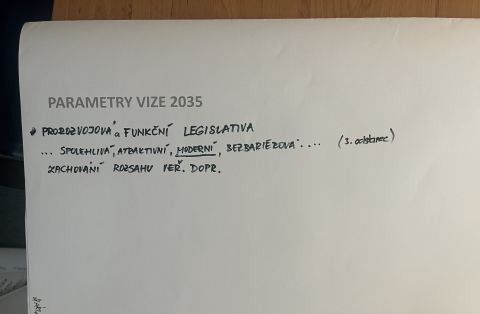 PARAMETRY VIZE 2035
• PROROZVOJOVÁ a FUNKČNÍ LEGISLATIVA
... SPOLEHLIVÁ, ATRAKTIVNÍ, MODERNÍ, BEZBARIÉROVÁ.... (3. odstavec)
ZACHOVÁNÍ ROZSAHU VEŘ. DOPR.